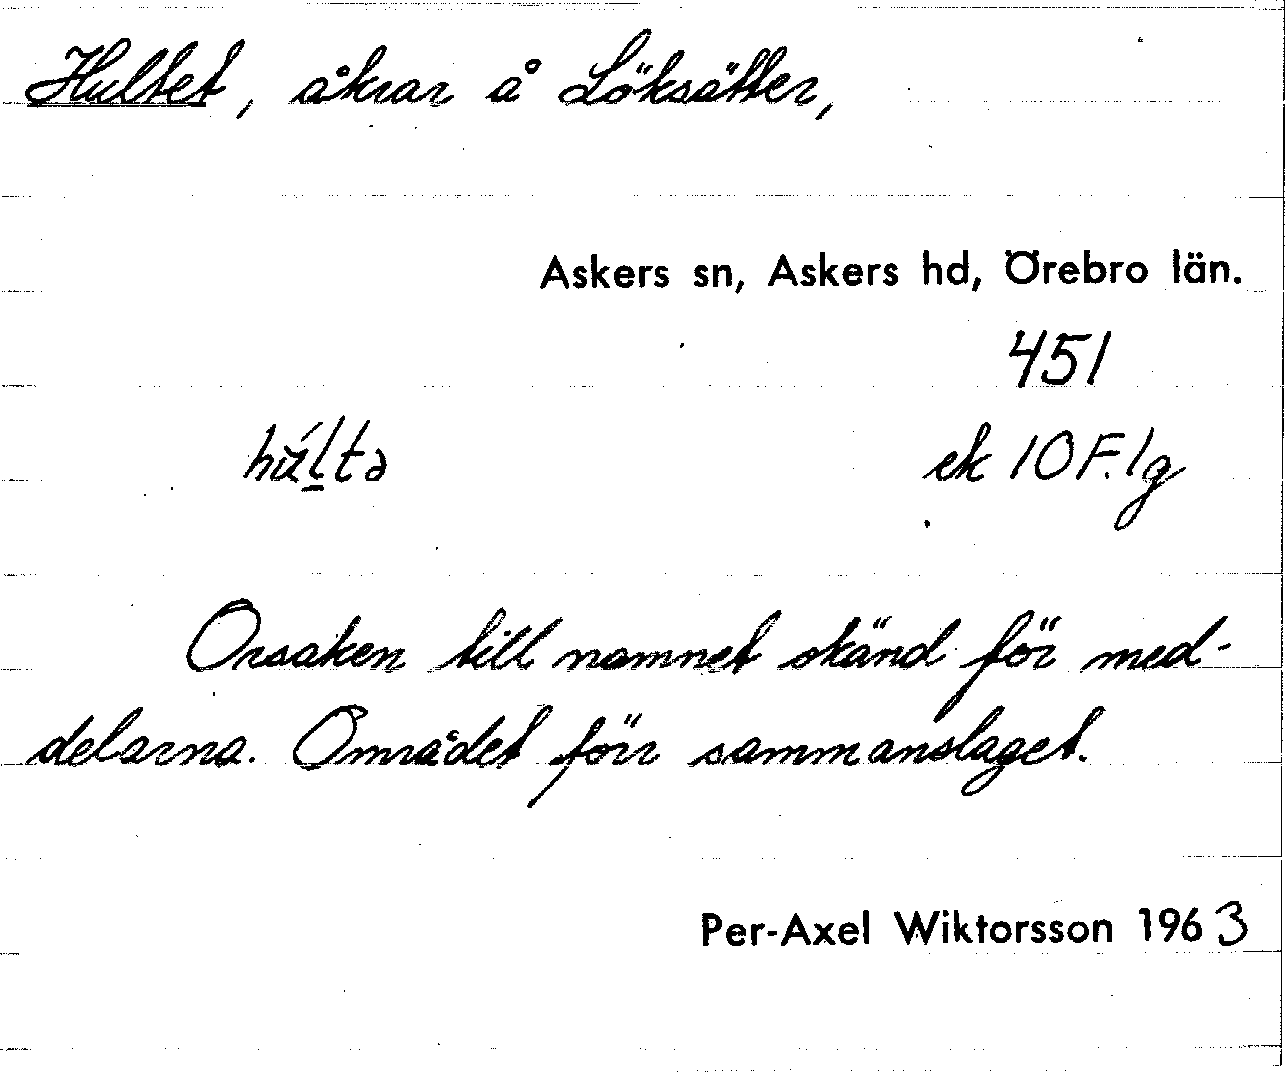 Hultet, åkrar å Löksätter,
Askers sn, Askers hd, Örebro län.
451
ek 10F.1g
Orsaken till namnet okänd för med-
delarna. Området förr sammanslaget.
Per-Axel Wiktorsson 1963